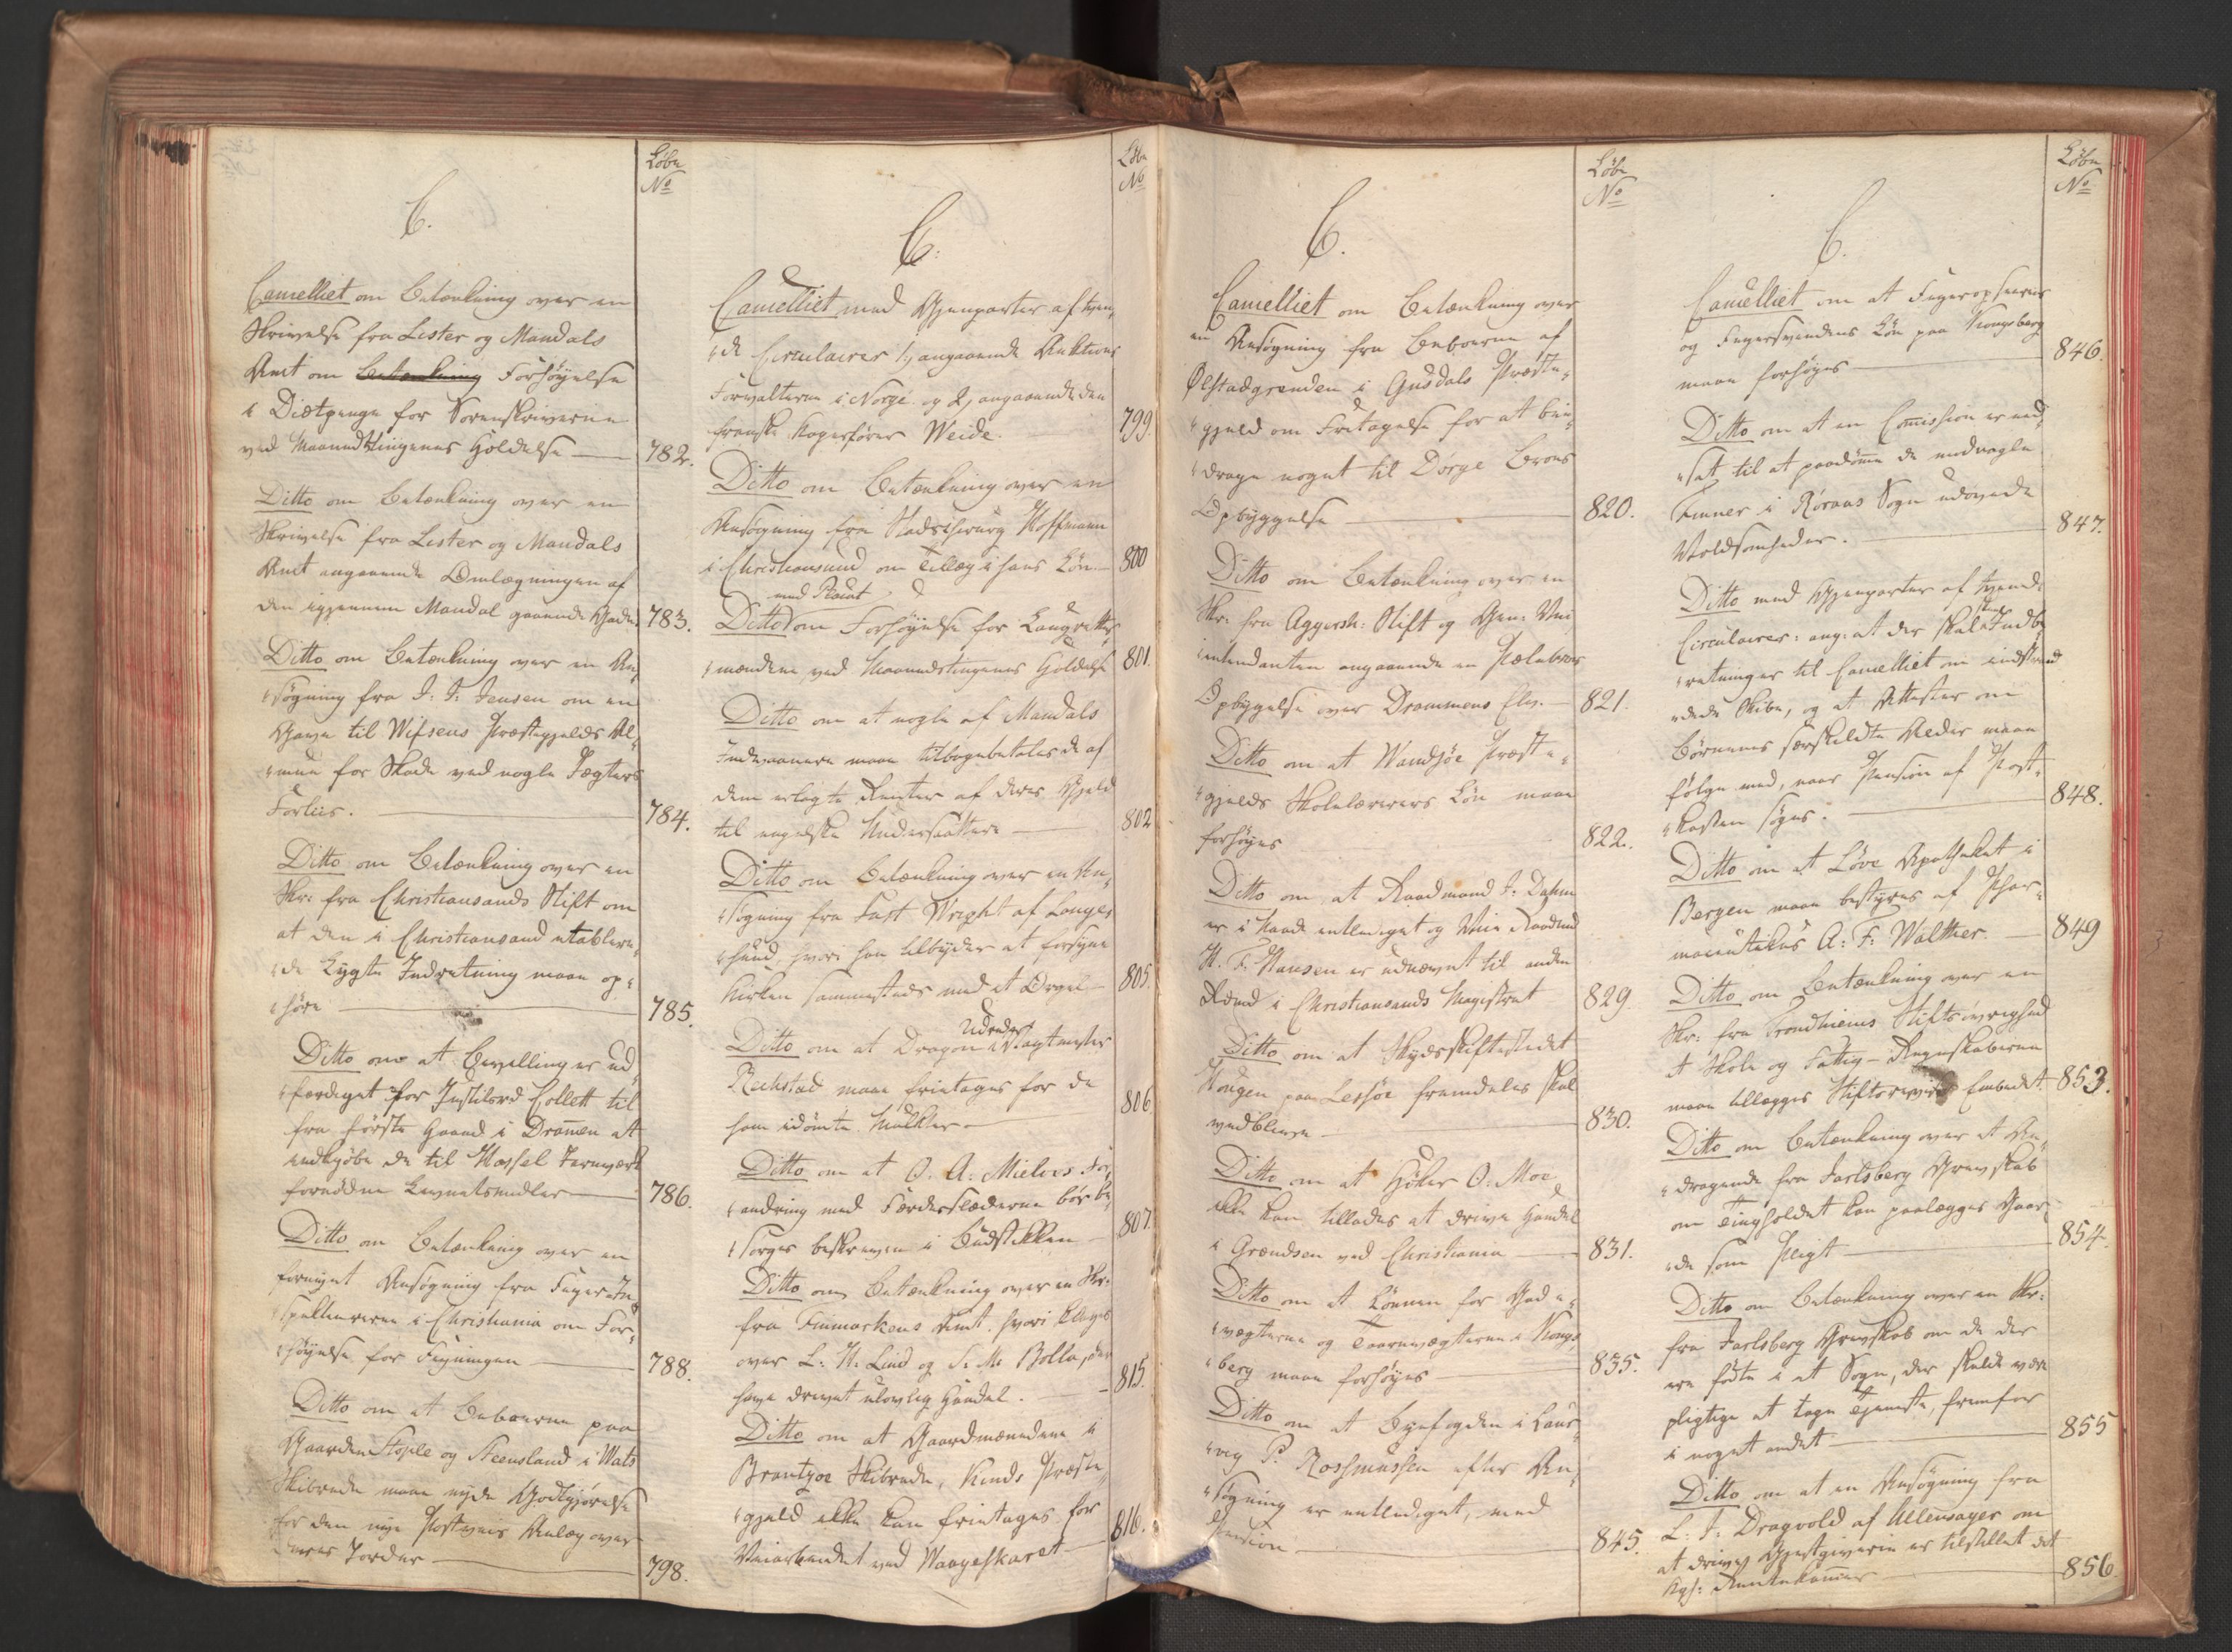 Løbe
No
C.
Cancelliet om Betænkning over en
Skrivelse fra Lister og Mandals
Amt om Betænkning Forhøyelse
i Diætpenge for Sorenskriverne
ved Maanedstingenes Holdelse 782.
Ditto om Betænkning over en
Skrivelse fra Lister og Mandals
Amt angaaende Omlægningen af
den igjennem Mandal gaaende Gade 783.
Ditto om Betænkning over en An„
„søgning fra J: J. Jensen om en
Gave til Wifsens Præstegjelds Al„
„mue for Skade ved nogle Jægters
Forliis. 784.
Ditto om Betænkning over en
Skr: fra Christiansands Stift om
at den i Christiansand etablere„
„de Lygte Indretning maae op„
„høre 785.
Ditto om at Bevilling er ud„
„færdiget for Justitsrd Collett til
fra første Haand i Dramen at
indkjøbe de til Hassel Jernværk
fornødne Levnetsmidler 786.
Ditto om Betænkning over en
fornyet Ansøgning fra Feyer In„
„specteurerne i Christiania om For„
„høyelse for Feyningen 788.
Ditto om at Beboerne paa
Gaarden Stople og Steensland i Wats
Skibrede maae nyde Godtgjørelse
for den nye Postveis Anlæg over
deres Jorder 798.
Løbe
No
C.
Cancelliet med Gjenparter af tven„
„de Circulairer 1, angaaende Auktions
Forvalterne i Norge og 2, angaaende den
franske Kaperfører Weide. 799.
Ditto om Betænkning over en
Ansøgning fra Stadschirurg Hoffmann
i Christiansund om Tillæg i hans Løn. 800
med Placat
Ditto om Forhøyelse for Laugrettes
„mændene ved Maanedstingenes Holdelse 801.
Ditto om at nogle af Mandals
Indvaanere maae tilbagebetales de af
dem erlagte Renter af deres Gjeld
til engelske Undersaattere 802
Ditto om Betænkning over en An„
„søgning fra Fast Wright af Lange„
„sund, hvori han tilbyder at forsyne
Kirken sammesteds med et Orgel 805.
Ditto om at Dragon Vagtmester
Rechstad maae fritages for de
ham idømte Mulkter 806
Ditto om at O. A: Mielves For„
„andring med Færdesslæderne bør be„
„sørges beskreven i Budstikken 807.
Ditto om Betænkning over en Skr:
fra Finmarkens Amt, hvori klages
over L: H: Lind og S. M: Bolla, der
have drevet ulovlig Handel. 815.
Ditto om at Gaardmændene i
Brantzoe Skibrede, Kinds Præste„
„gjeld ikke kan fritages for
Veiarbeidet ved Waageskaret 816.
Løbe
No
C.
Cancelliet om Betænkning over
en Ansøgning fra Beboerne af
Ølstadgrenden i Gusdals Præste„
„gjeld om Fritagelse for at bi„
„drage noget til Dørge Broes
Opbyggelse 820.
Ditto om Betænkning over en
Skr: fra Aggersh: Stift og Gen: Vei
„intendanten angaaende en Pælebroes
Opbyggelse over Drammens Elv. 821.
Ditto om at Wandsøe Præste„
„gjelds Skolelæreres Løn maae
forhøyes 822.
Ditto om at Raadmand J: Dahm
er i Naade entlediget og Vice Raadmd
H. F: Hansen er udnævnt til anden
Rdmd i Christiansands Magistrat 829.
Ditto om at Skydsskiftestedet
Haugen paa Lessøe fremdeles skal
vedblive 830.
Ditto om at Høker O: Moe
ikke kan tillades at drive Handel
i Grændsen ved Christiania 831.
Ditto om at Lønnen for Gade„
„vægterne og Taarnvægterne i Kongs„
„berg maae forhøyes 835.
Ditto om at Byefogden i Laur„
„vig P: Rossmussen efter An„
„søgning er entlediget, med
Pension 845.
Løbe
No
C.
Cancelliet om at Feyeropseerens
og Feyersvendens Løn paa Kongsberg
maae forhøyes 846.
Ditto om at en Comission er ned„
„sat til at paadømme de ved nogle
Finner i Røraas Sogn udøvede
Voldsomheder. 847.
Ditto med Gjenparter af tvende
Circulairer: ang: at der skal skee Indbe„
„retninger til Cancelliet om indstran„
„dede Skibe, og at Attester om
Børnenes særskildte Alder maae
følge med, naar Pension af Post„
„kassen søges. 848.
Ditto om at Løve Apotheket i
Bergen maae bestyres af Phar„
„maceutikus A: F: Walther 849
Ditto om Betænkning over en
Skr: fra Trondhiems Stiftsøvrighed
at Skole og Fattig-Regnskaberne
maae tillægges Stiftsrevisor Embedet 853.
Ditto om Betænkning over et An„
„dragende fra Jarlsberg Grevskab
om Tingholdet kan paalægges Gaar„
„de som Pligt 854.
Ditto om Betænkning over en Skr:
fra Jarlsberg Grevskab om de der
ere fødte i et Sogn, der skulde være
pligtige at tage Tjeneste, fremfor
i noget andet 855
Ditto om at en Ansøgning fra
L: J: Dragvold af Ullensager om
at drive Gjestgiverie er tilstillet det
Kgl: Rentekammer 856.